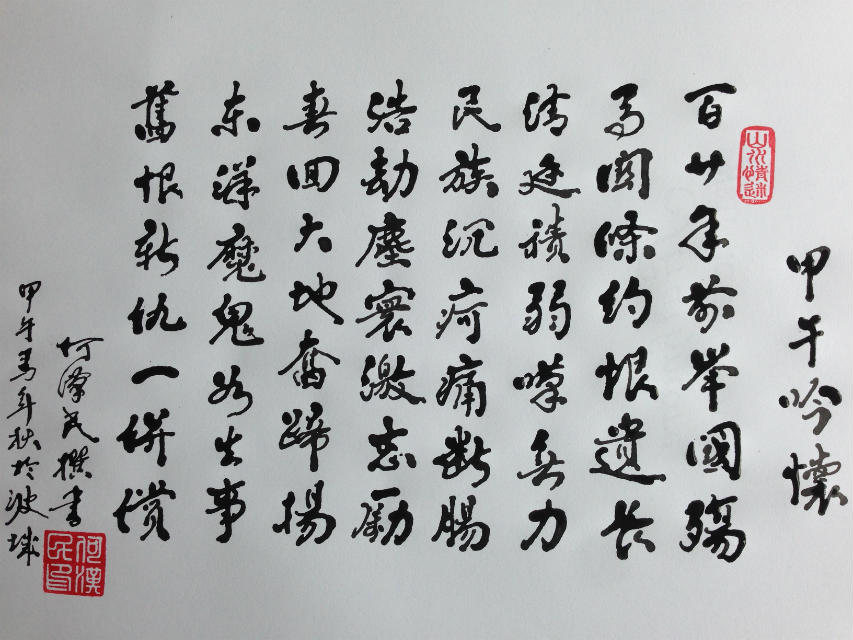 甲午吟懷
山水情迷
百廿年前举國殤
馬関條約恨遺長
清廷積弱嘆無力
民族沉疴痛断腸
浩劫塵寰激志勵
春回大地奮蹄揚
东洋魔鬼如生事
舊恨新仇一併償
何漢民撰書
甲午馬年秋於波城
何漢民印